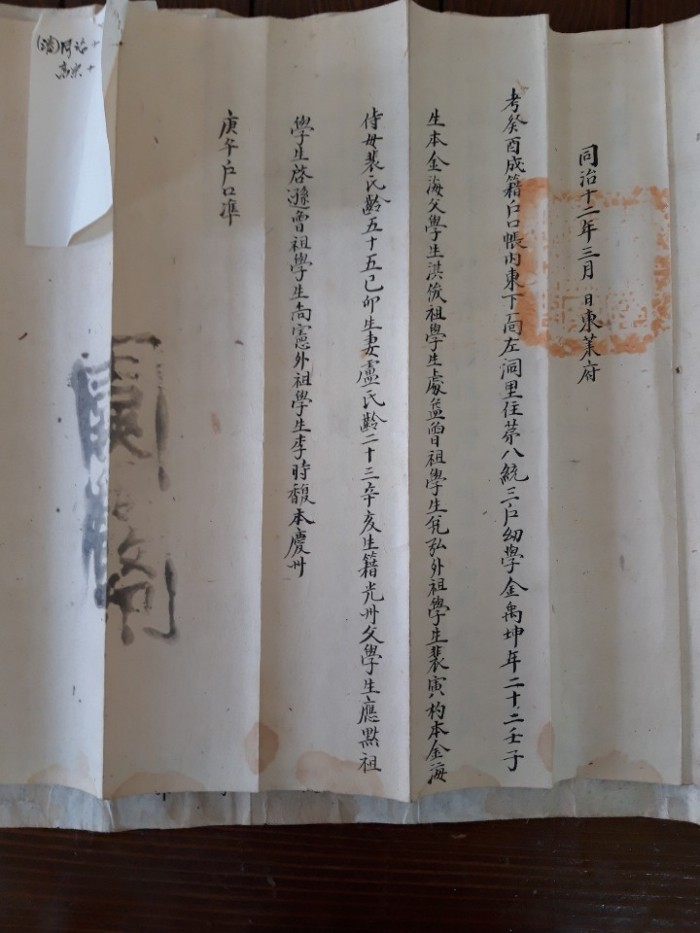 同治十二年三月 日東萊府
考癸酉成籍戶口帳內東下面左洞里住第八統三戶幼學金禹坤年二十二壬子
生本金海父學生淇俊祖學生處益曾祖學生兌弘外祖學生裴寅杓本金海
侍母裴氏齡五十五己卯生妻盧氏齡二十三辛亥生籍光州父學生應點祖
學生啓遜曾祖學生尙憲外祖學生李時馥本慶州
庚午戶口準